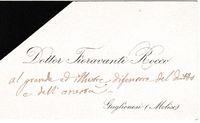 Dottor Fioravanti Rocco
al grande ed illustre difensore del diritto
e dell'onestà
Guglionesi (Molise)